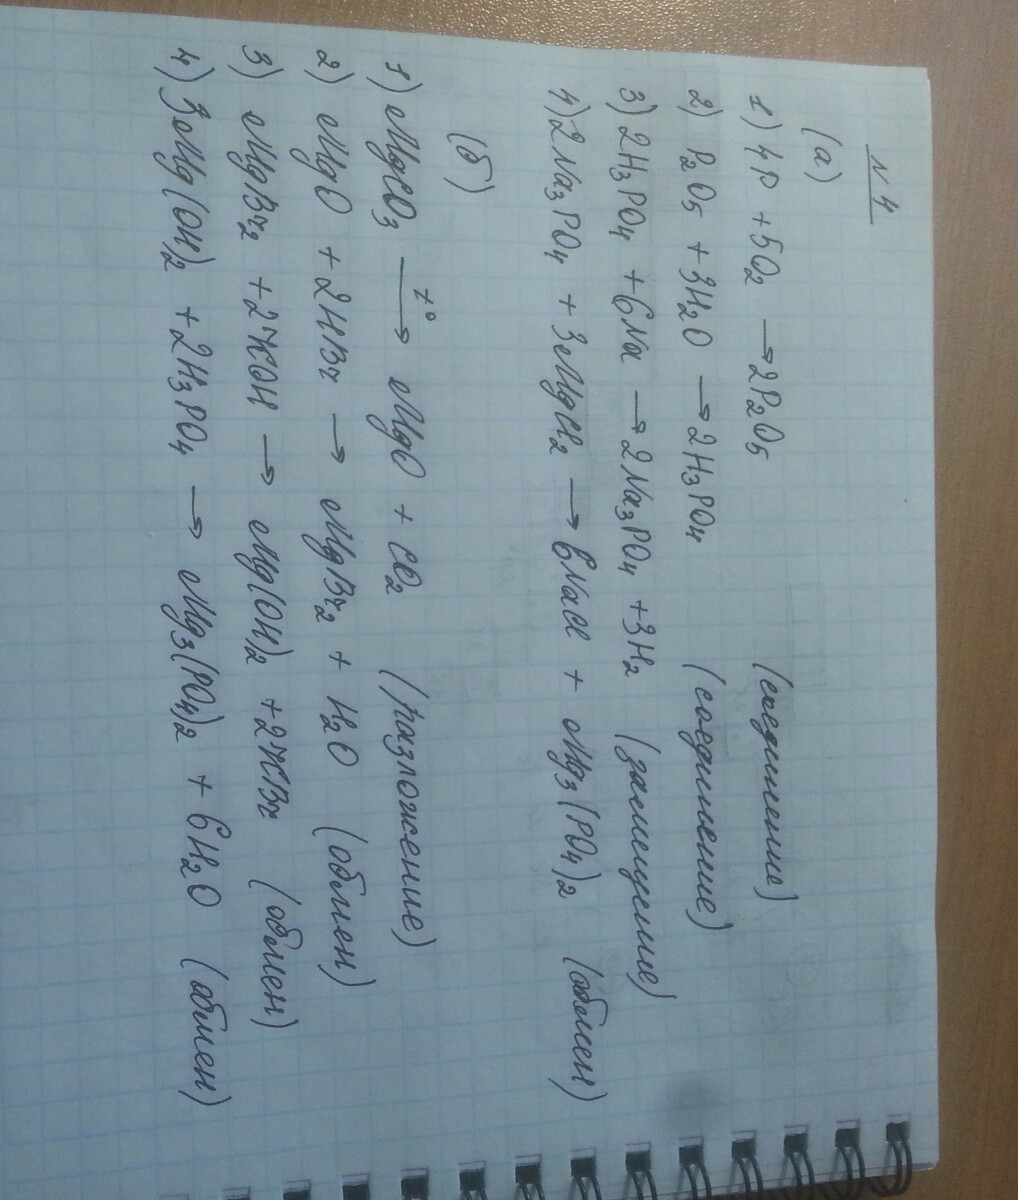 N 4
(а)
1) 4P + 5O₂ → 2P₂O₅ (соединение)
2) P₂O₅ + 3H₂O → 2H₃PO₄ (соединение)
3) 2H₃PO₄ + 6Na → 2Na₃PO₄ + 3H₂ (замещение)
4) 2Na₃PO₄ + 3MgCl₂ → 6NaCl + Mg₃(PO₄)₂ (обмен)
(б)
1) MgCO₃ →t° MgO + CO₂ (разложение)
2) MgO + 2HBr → MgBr₂ + H₂O (обмен)
3) MgBr₂ + 2KOH → Mg(OH)₂ + 2KBr (обмен)
4) 3Mg(OH)₂ + 2H₃PO₄ → Mg₃(PO₄)₂ + 6H₂O (обмен)